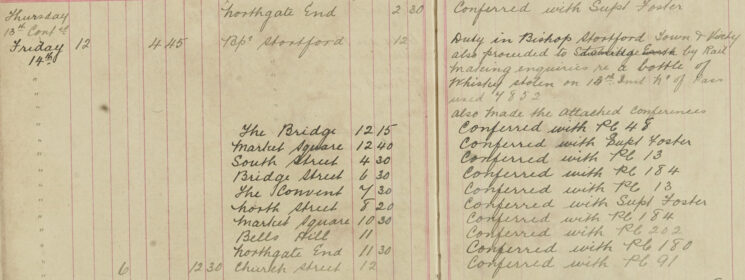 Thursday Northgate End 2 30 Conferred with Supt Foster
13th Contd
Friday 12 4 45 Bps Stortford 12 Duty in Bishop Stortford Town & Vicity
14th also proceeded to by Rail
" making enquiries re a bottle of
" Whisky stolen on 13th Inst No of Pass
" used 7852
" also made the attached conferences
" The Bridge 12 15 Conferred with PC 48
" Market Square 12 40 Conferred with Supt Foster
" South Street 4 30 Conferred with PC 13
" Bridge Street 6 30 Conferred with PC 184
" The Convent 7 30 Conferred with PC 13
" North Street 8 20 Conferred with Supt Foster
" Market Square 10 30 Conferred with PC 184
" Bells Hill 11 Conferred with PC 202
" Northgate End 11 30 Conferred with PC 180
6 12 30 Church Street 12 Conferred with PC 91